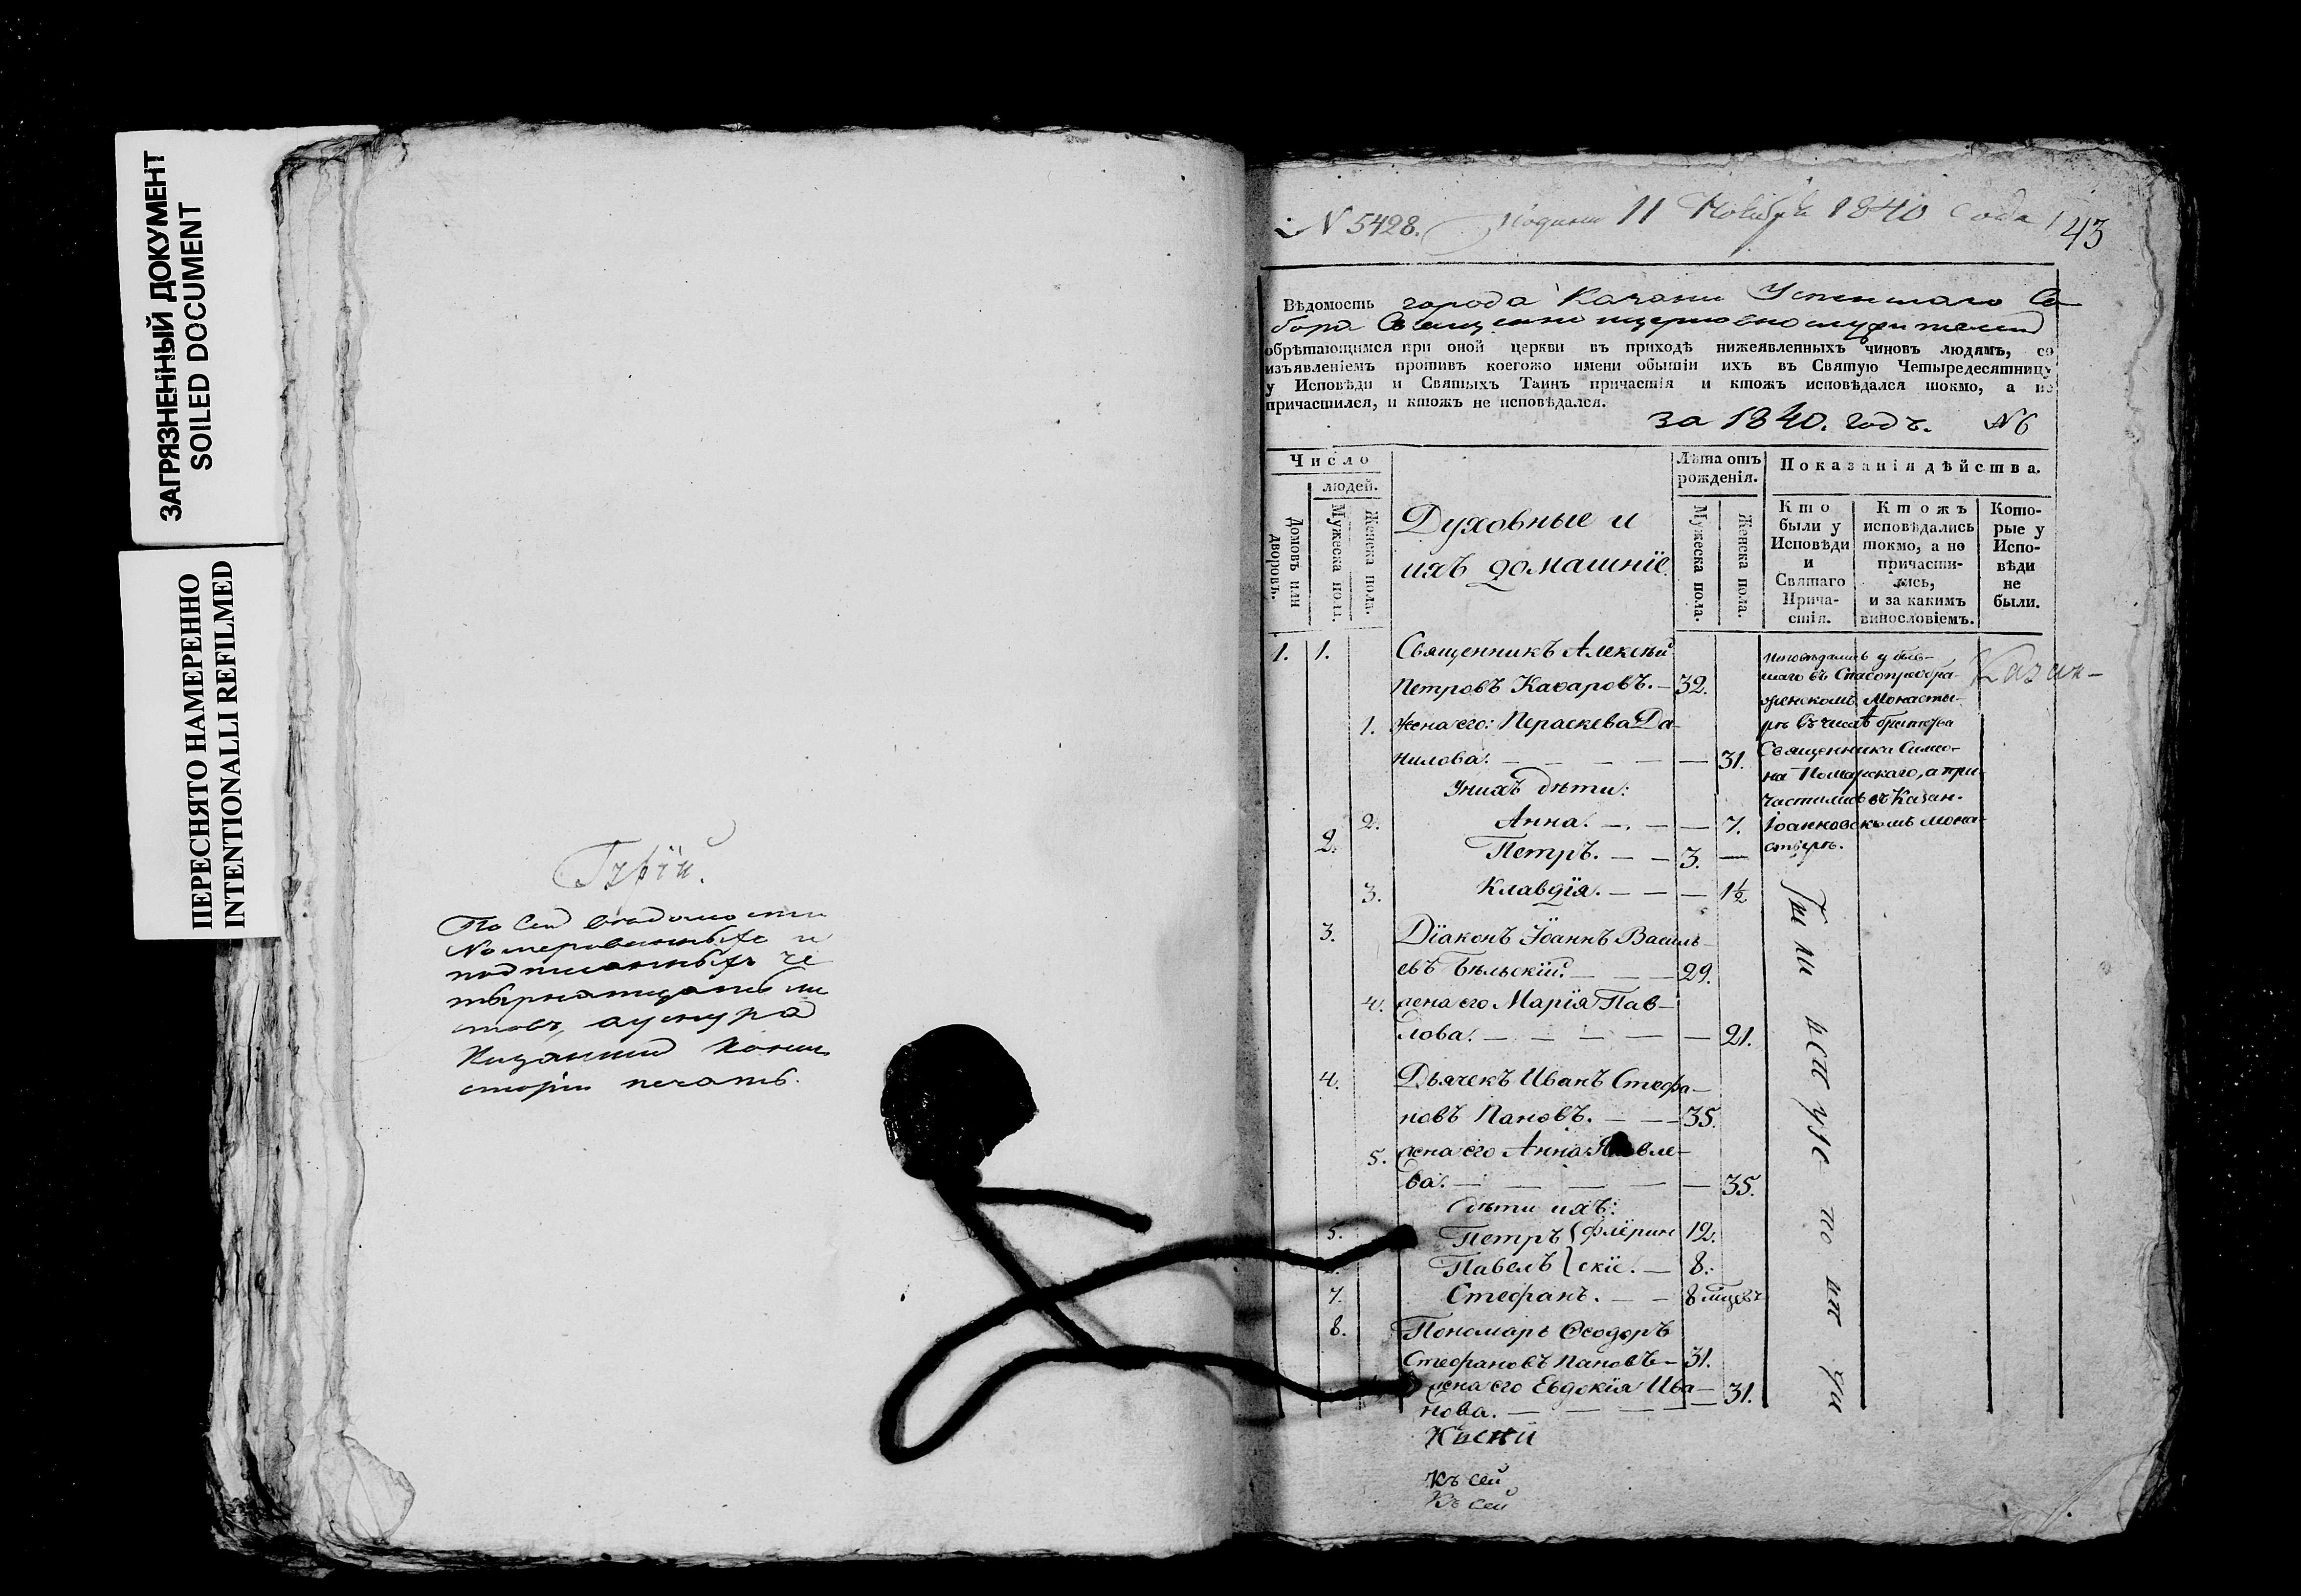 ЗАГРЯЗНЕННЫЙ ДОКУМЕНТ
SOILED DOCUMENT
ПЕРЕСНЯТО НАМЕРЕННО
INTENTIONALLI REFILMED
По сей ведомости
Номерованныхъ и
подписанныхъ че
тырнатцать ли
стовъ, а у снура
Казанской Конси
сторіи печать.
N 5428. Подана 11 Ноября 1840 года
43
Вѣдомость города Казани Успенскаго Со
бора Священно и церковнослужителей
обрѣтающимся при оной церкви въ приходѣ нижеявленныхъ чиновъ людямъ, со
изъявленіемъ противъ коегожо имени обытіи ихъ въ Святую Четыредесятницу
у Исповѣди и Святыхъ Таинъ причастія и ктожъ исповѣдался токмо, а не
причастился, и ктожъ не исповѣдался.
за 1840. годъ. N6
Число
людей.
Домовъ или дворовъ.
Мужеска полу.
Женска пола.
Духовные и
ихъ домашніе
Лѣта отъ
рожденія.
Мужеска пола.
Женска пола.
Показанія дѣйства.
Кто
были у
Исповѣди
и
Святаго
Прича-
стія.
Ктожъ
исповѣдались
токмо, а не
причасти-
лись,
и за какимъ
винословіемъ.
Кото-
рые у
Испо-
вѣди
не
были.
1. 1. Священникъ Алексѣй
Петровъ Каѳаровъ. — 32.
1. Жена его: Пераскева Да-
нилова. — 31.
У нихъ дѣти:
2. Анна. — 7.
2. Петръ. — 3. —
3. Клавдія. — 1½
исповѣдались у быв-
шаго въ Спасопреобра-
женскомъ Монасты-
рѣ въ числѣ братства
Священника Симо-
на Помарскаго, а при-
частились въ Казан.
Іоанновскомъ мона-
стырѣ.
Казан-
3. Діаконъ Іоаннъ Василь-
евъ Бѣльскій. — 29.
4. Жена его Марія Пав-
лова. — 21.
4. Дьячекъ Иванъ Стефа-
новъ Пановъ. — 35.
5. Жена его Анна Яковле-
ва. — 35.
дѣти ихъ:
5. Петръ { Флёрин 12.
Павелъ } скіе. — 8.
7. Стефанъ. — 8 мцовъ
8. Пономарь Ѳеодоръ
Стефановъ Пановъ — 31.
Жена его Евдокія Ива-
нова. — 31.
Къ сей
Къ сей